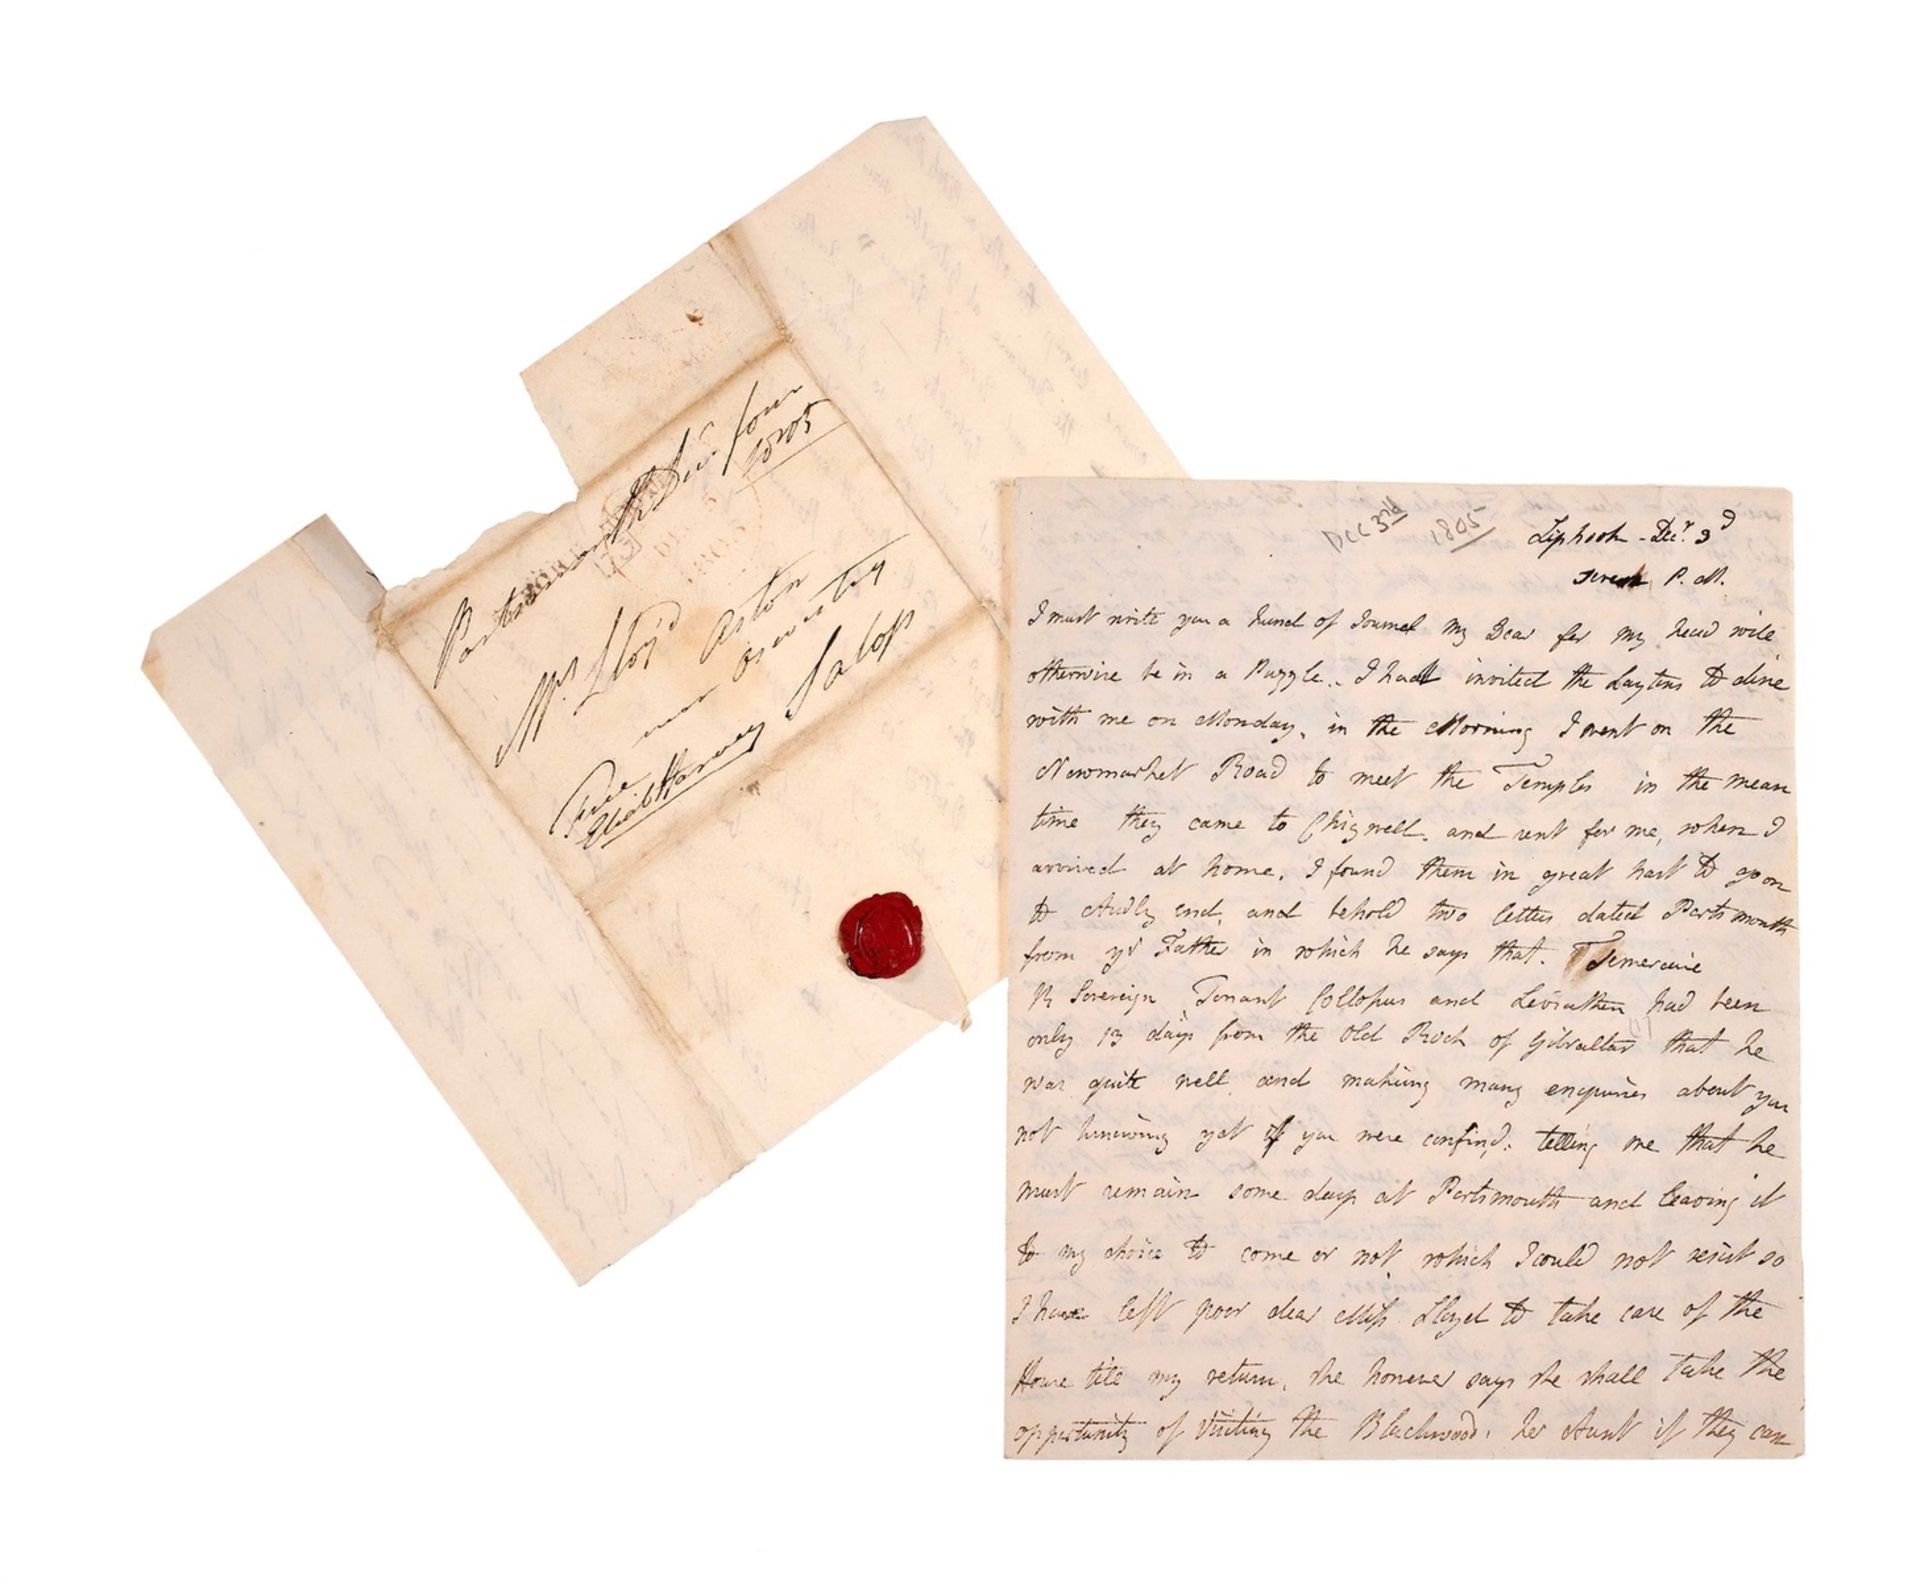 Portsmouth Decr four
1805
Mrs Lloyd
Aston
near Oswestry
Salop
Free
Eliab Harvey
Dec 3rd 1805
Liphook - Decr. 3d
Seven P. M.
I must write you a kind of Journal my Dear for my head wile
otherwise be in a Puzzle. I had invited the Laytons to dine
with me on Monday, in the Morning I went on the
Newmarket Road to meet the Temples in the mean
time they came to Chigwell. and sent for me, when I
arrived at home. I found them in great hast to go on
to Audly end, and behold two letters dated Portsmouth
from yr Father in which he says that. Temeraire
R Sovereign Tonant Collopus and Leviathen had been
only 13 days from the Old Rock of Gibraltar that he
was quite well and making many enquiries about you
not knowing yet if you were confind. telling me that he
must remain some days at Portsmouth and leaving it
to my choice to come or not which I could not resist so
I have left poor dear Miss Lloyd to take care of the
House tile my return, she however says she shall take the
opportunity of visiting the Blackwoods, her Aunt if they can